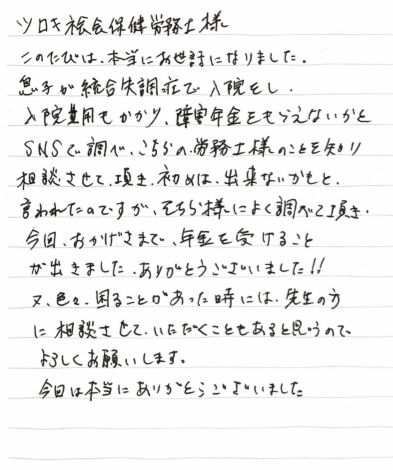 ツロキ社会保健労務士様
このたびは、本当にお世話になりました。
息子が統合失調症で入院をし、
入院費用もかかり、障害年金をもらえないかと
SNSで調べ、こちらの労務士様のことを知り
相談させて、頂き、初めは、出来ないかもと、
言われたのですが、そちら様によく調べて頂き、
今回、おかげさまで、年金を受けること
が出きました、ありがとうございました!!
又、色々、困ることがあった時には、先生の方
に相談させて、いただくこともあると思うので、
よろしくお願いします。
今回は本当にありがとうございました